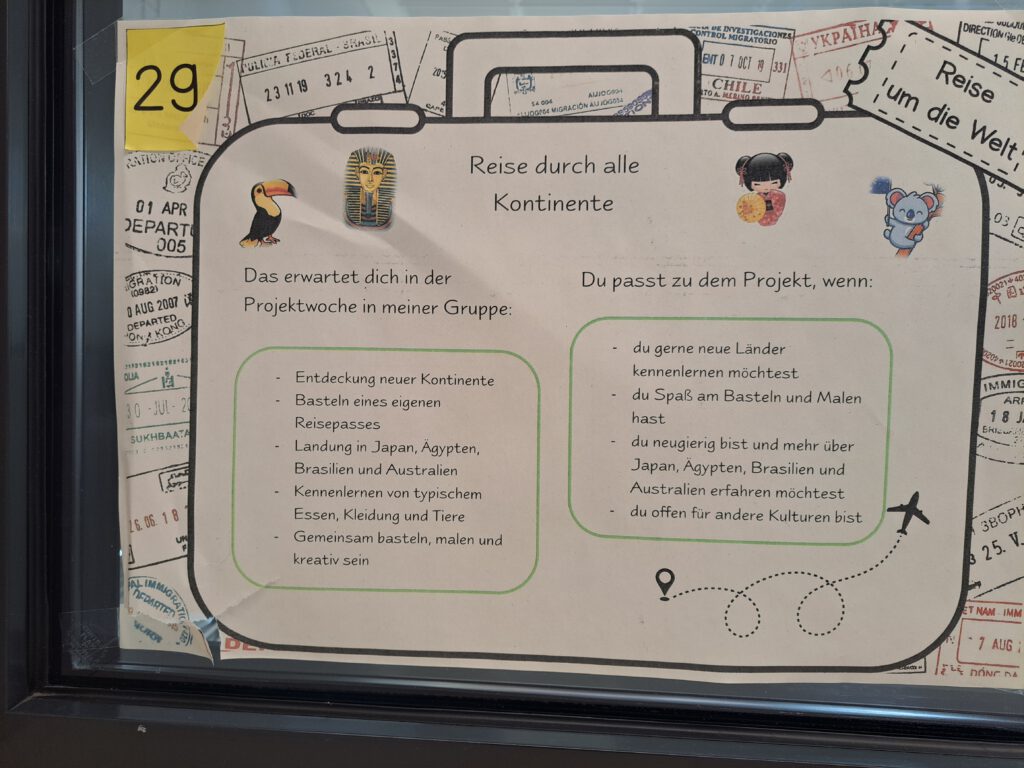 29
POLICIA FEDERAL - BRASIL
23 11 19 324 2
DE INVESTIGACIONES
CONTROL MIGRATORIO
07 OCT 19 331
CHILE
УКРАЇНА
DIRECTION
15 FE
Reise
um die Welt
SA 004 AUJOG004
MIGRACIÓN AUJOG004
01 APR
DEPART
005
Reise durch alle
Kontinente
Das erwartet dich in der
Projektwoche in meiner Gruppe:
- Entdeckung neuer Kontinente
- Basteln eines eigenen
Reisepasses
- Landung in Japan, Ägypten,
Brasilien und Australien
- Kennenlernen von typischem
Essen, Kleidung und Tiere
- Gemeinsam basteln, malen und
kreativ sein
Du passt zu dem Projekt, wenn:
- du gerne neue Länder
kennenlernen möchtest
- du Spaß am Basteln und Malen
hast
- du neugierig bist und mehr über
Japan, Ägypten, Brasilien und
Australien erfahren möchtest
- du offen für andere Kulturen bist
(0982)
AUG 2007
DEPARTED
KONG
30 - JUL
SUKHBAATA
26.06.18
IMMIGRATION
DEPARTED
2018
IMMIG
18 JA
25. V
ET NAM IMM
7 AUG